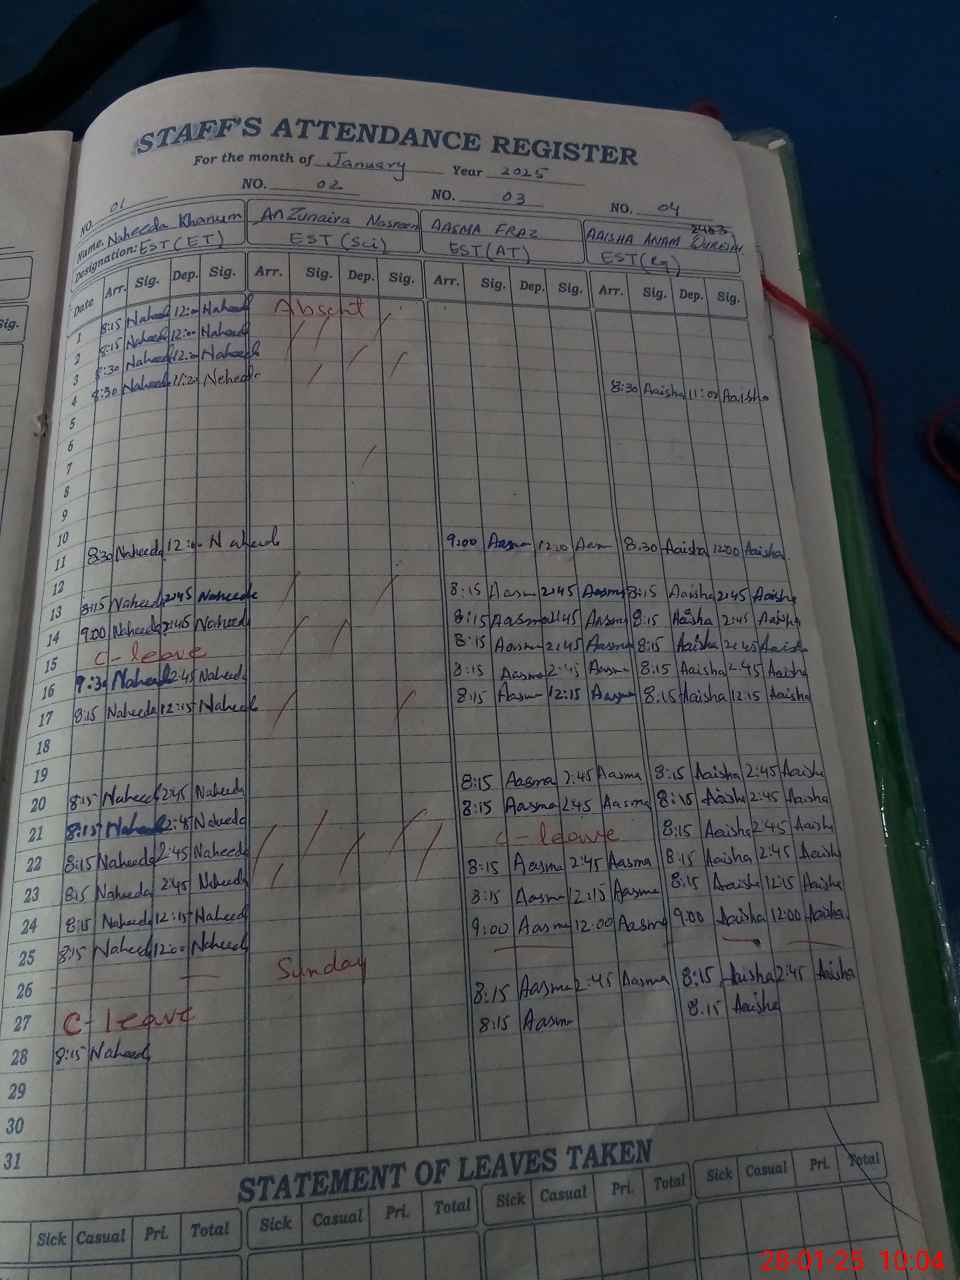 STAFF'S ATTENDANCE REGISTER
For the month of January Year 2025
NO. 01 NO. 02 NO. 03 NO. 04
Name. Naheeda Khanum An Zunaira Nasreen AASMA FRAZ AAISHA ANAM
Designation: EST(ET) EST(Sci) EST(AT) EST(eg)
Date Arr. Sig. Dep. Sig. Arr. Sig. Dep. Sig. Arr. Sig. Dep. Sig. Arr. Sig. Dep. Sig.
1 8:15 Naheed 12:00 Naheed Absent
2 8:15 Naheed 12:00 Naheed
3 8:30 Naheed 12:20 Naheed
4 8:30 Naheed 11:20 Naheeda 8:30 Aaisha 11:00 Aaisha
5
6
7
8
9
10
11 8:30 Naheed 12:00 Naheed 9:00 Aasma 12:00 Aasm 8:30 Aaisha 12:00 Aaisha
12
13 8:15 Naheed 2:45 Naheeda 8:15 Aasma 2:45 Aasma 8:15 Aaisha 2:45 Aaisha
14 9:00 Naheeda 2:45 Naheeda 8:15 Aasma 2:45 Aasma 8:15 Aaisha 2:45 Aaisha
15 C-leave 8:15 Aasma 2:45 Aasma 8:15 Aaisha 2:45 Aaisha
16 9:30 Naheed 2:45 Naheeda 8:15 Aasma 2:45 Aasma 8:15 Aaisha 2:45 Aaisha
17 8:15 Naheeda 12:15 Naheed 8:15 Aasma 12:15 Aasma 8:15 Aaisha 12:15 Aaisha
18
19
20 8:15 Naheed 2:45 Naheeda 8:15 Aasma 2:45 Aasma 8:15 Aaisha 2:45 Aaisha
21 8:15 Naheed 2:45 Naheeda 8:15 Aasma 2:45 Aasma 8:15 Aaisha 2:45 Aaisha
22 8:15 Naheed 2:45 Naheeda C-leave 8:15 Aaisha 2:45 Aaisha
23 8:15 Naheeda 2:45 Naheeda 8:15 Aasma 2:45 Aasma 8:15 Aaisha 2:45 Aaisha
24 8:15 Naheed 12:15 Naheed 8:15 Aasma 12:15 Aasma 8:15 Aaisha 12:15 Aaisha
25 8:15 Naheed 12:00 Naheed 9:00 Aasma 12:00 Aasma 9:00 Aaisha 12:00 Aaisha
26 Sunday
27 C-leave 8:15 Aasma 2:45 Aasma 8:15 Aaisha 2:45 Aaisha
28 8:15 Naheed 8:15 Aasma 8:15 Aaisha
29
30
31
STATEMENT OF LEAVES TAKEN
Sick Casual Pri. Total Sick Casual Pri. Total Sick Casual Pri. Total Sick Casual Pri. Total
28-01-25 10:04